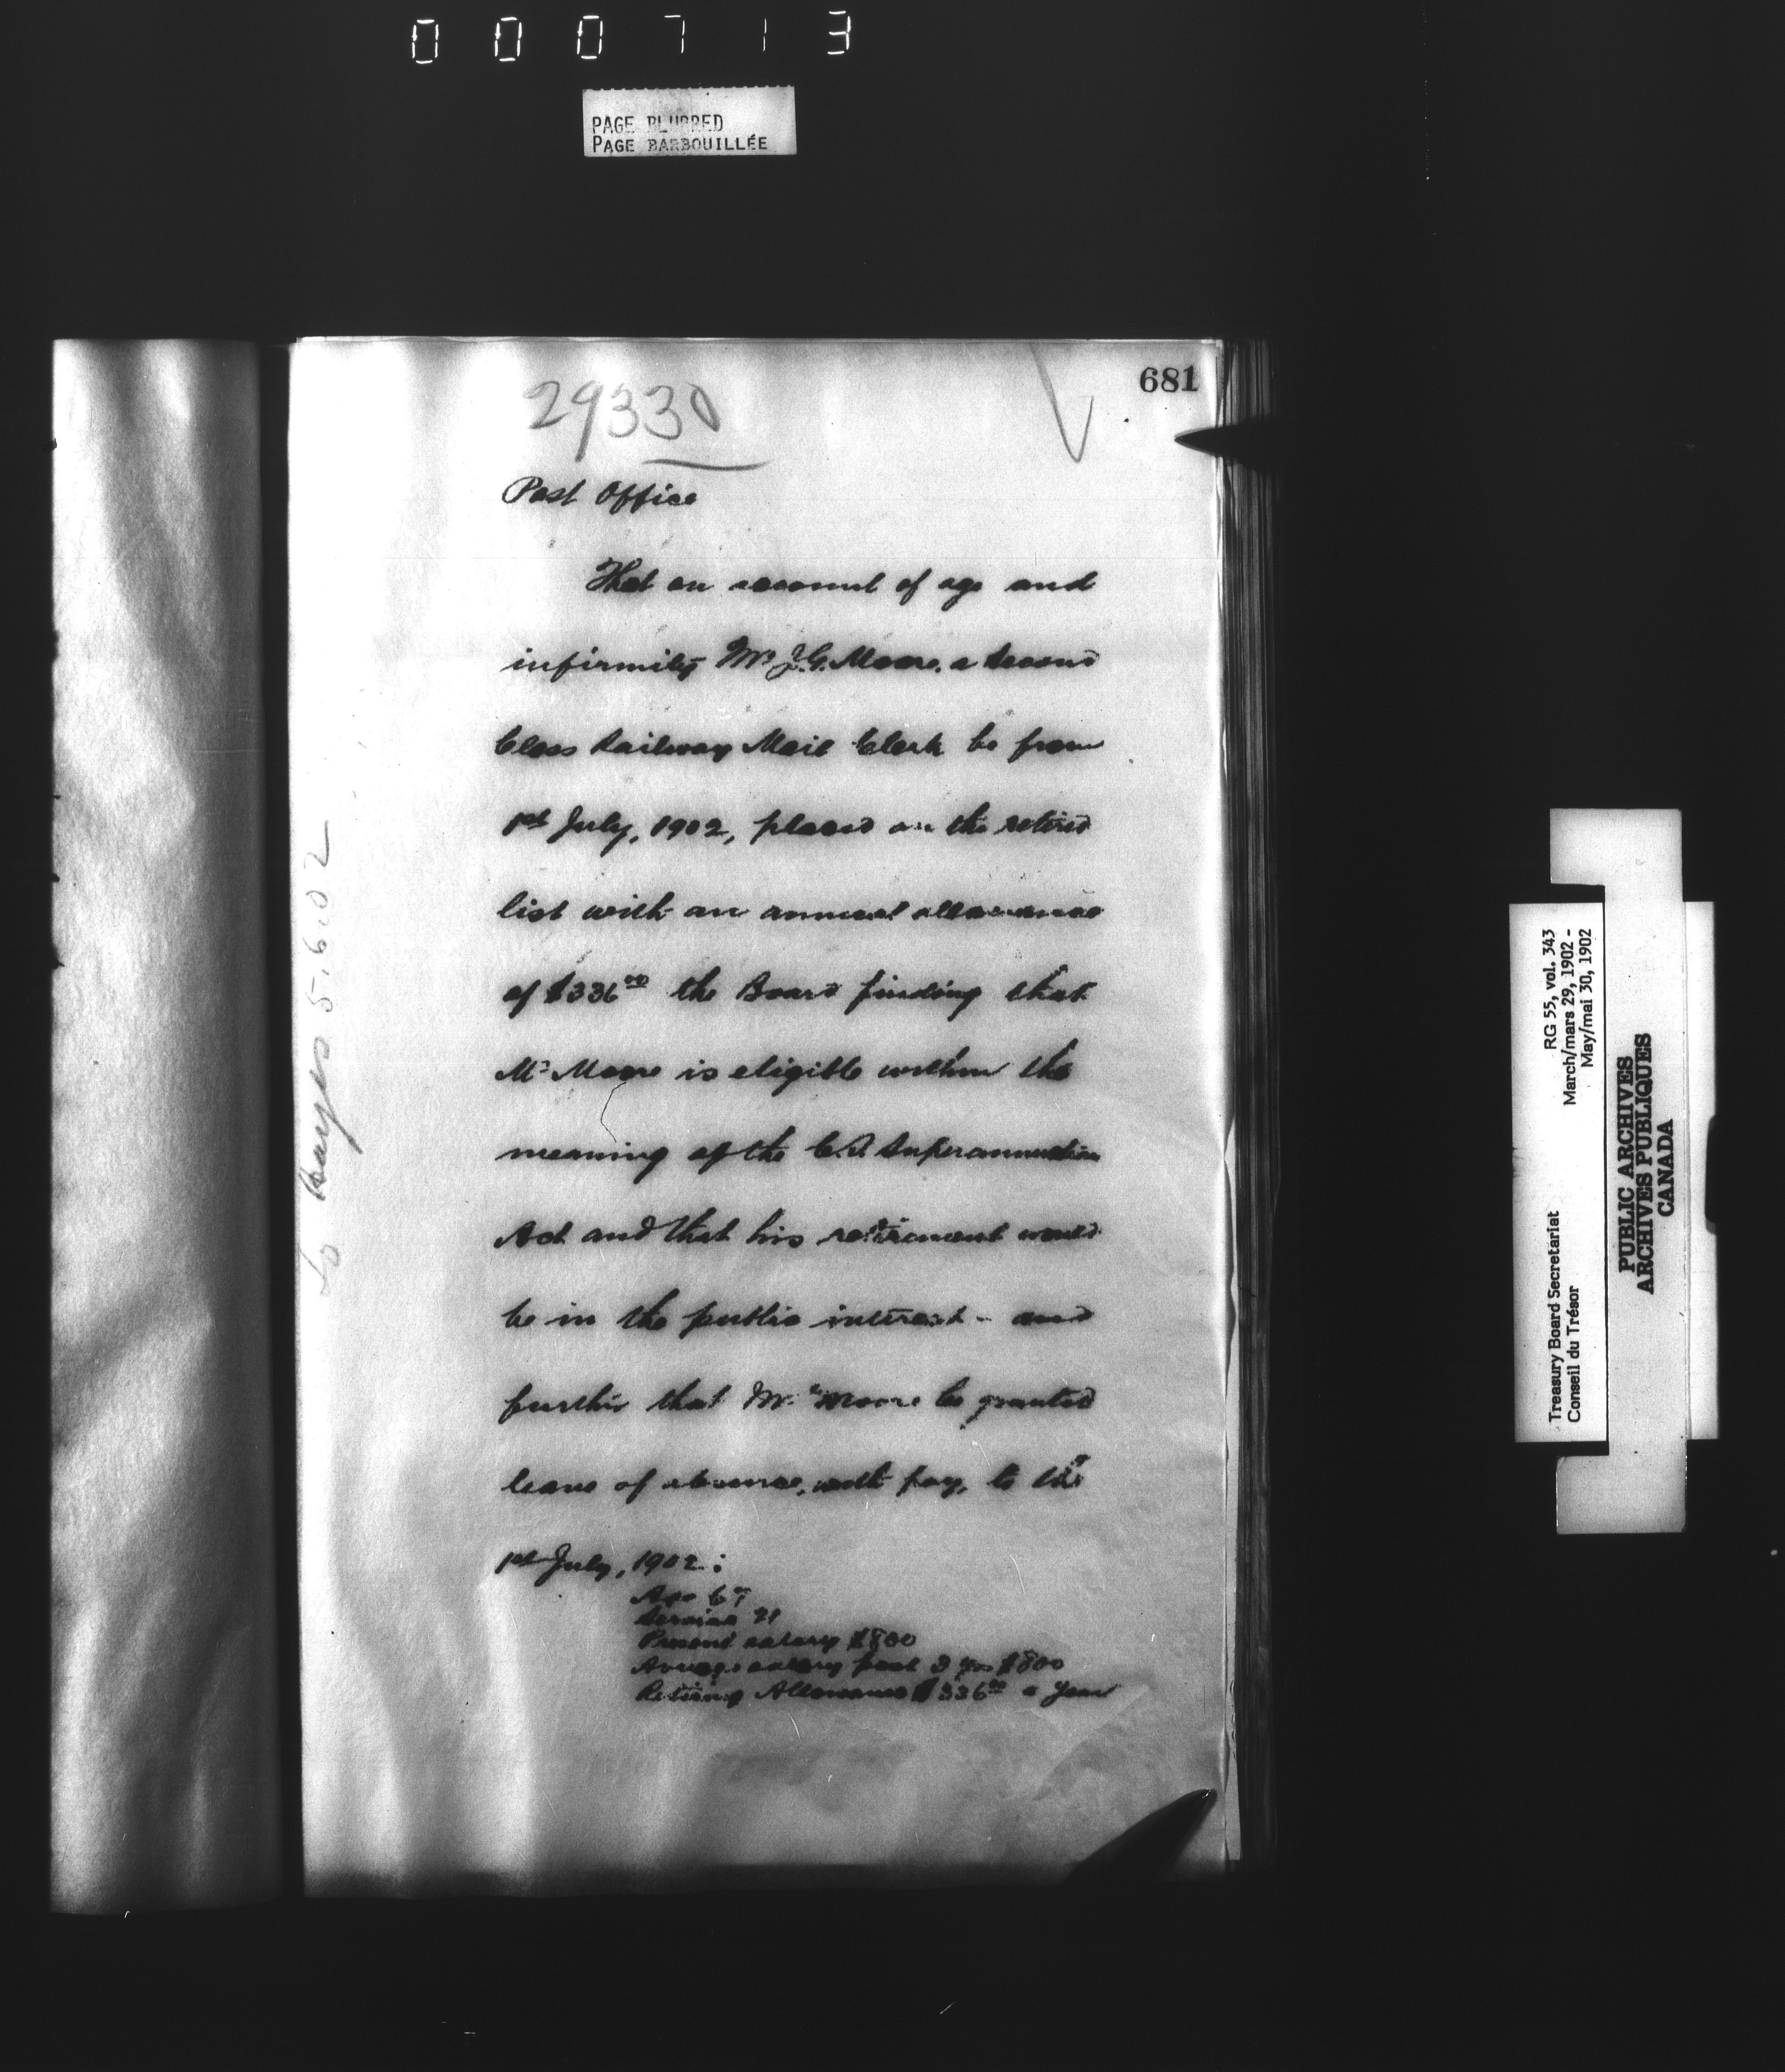 000713
PAGE BLURRED
PAGE BARBOUILLÉE
681
29330
Post Office
That on account of age and
infirmity Mr J.G. Moore, a Second
Class Railway Mail Clerk be from
1st July, 1902, placed on the retired
list with an annual allowance
of $336.00 the Board finding that
Mr Moore is eligible within the
meaning of the C.S. Superannuation
Act and that his retirement would
be in the public interest - and
further that Mr. Moore be granted
leave of absence, with pay, to the
1st July, 1902:
Age 67
Service 21
Present salary $800
Average salary past 3 yrs $800
Retiring Allowance $336.00 a year
5.6.02
Treasury Board Secretariat
Conseil du Trésor
RG 55, vol. 343
March/mars 29, 1902 -
May/mai 30, 1902
PUBLIC ARCHIVES
ARCHIVES PUBLIQUES
CANADA